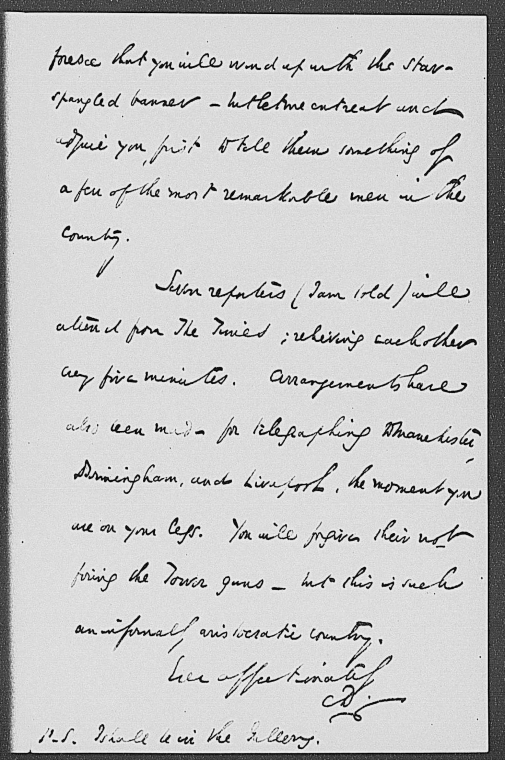 foresee that you will wind up with the star-
spangled banner – but let me entreat and
adjure you, first to tell them something of
a few of the most remarkable men in the
country.
Seven reporters (I am told) will
attend from The Times; relieving each other
every five minutes. Arrangements have
also been made for telegraphing to Manchester,
Birmingham, and Liverpool, the moment you
are on your legs. You will forgive their not
firing the Tower guns – but this is such
an infernally aristocratic country.
Ever affectionately
CD.
P.S. I shall be in the Gallery.